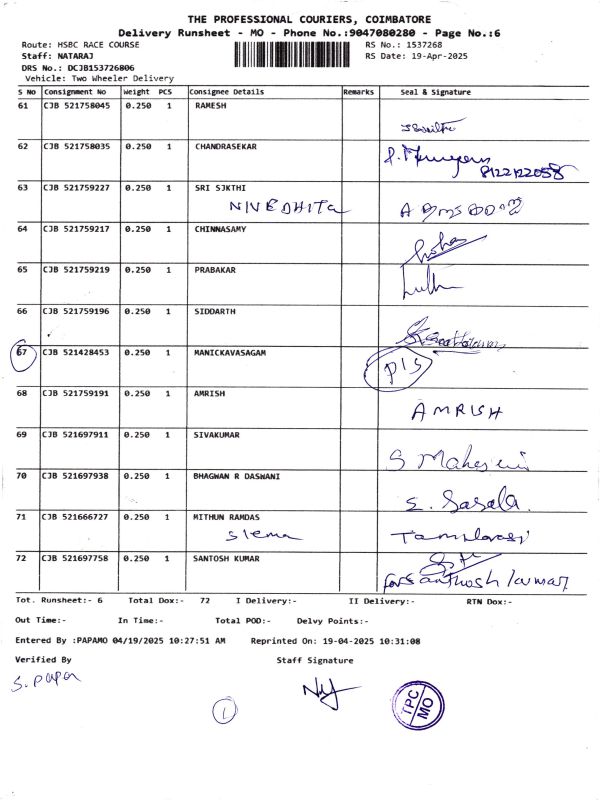 THE PROFESSIONAL COURIERS, COIMBATORE
Delivery Runsheet - MO - Phone No.:9047080280 - Page No.:6
Route: HSBC RACE COURSE RS No.: 1537268
Staff: NATARAJ RS Date: 19-Apr-2025
DRS No.: DCJB153726806
Vehicle: Two Wheeler Delivery
S No Consignment No Weight PCS Consignee Details Remarks Seal & Signature
61 CJB 521758045 0.250 1 RAMESH
62 CJB 521758035 0.250 1 CHANDRASEKAR
8122122058
63 CJB 521759227 0.250 1 SRI SJKTHI
NIVEDHITA
64 CJB 521759217 0.250 1 CHINNASAMY
65 CJB 521759219 0.250 1 PRABAKAR
66 CJB 521759196 0.250 1 SIDDARTH
67 CJB 521428453 0.250 1 MANICKAVASAGAM
P/S
68 CJB 521759191 0.250 1 AMRISH
AMRISH
69 CJB 521697911 0.250 1 SIVAKUMAR
70 CJB 521697938 0.250 1 BHAGWAN R DASWANI
S. Sasala
71 CJB 521666727 0.250 1 MITHUN RAMDAS
72 CJB 521697758 0.250 1 SANTOSH KUMAR
for Santhosh kumar
Tot. Runsheet:- 6 Total Dox:- 72 I Delivery:- II Delivery:- RTN Dox:-
Out Time:- In Time:- Total POD:- Delvy Points:-
Entered By :PAPAMO 04/19/2025 10:27:51 AM Reprinted On: 19-04-2025 10:31:08
Verified By Staff Signature
S. PAPA
1
TPC
MO